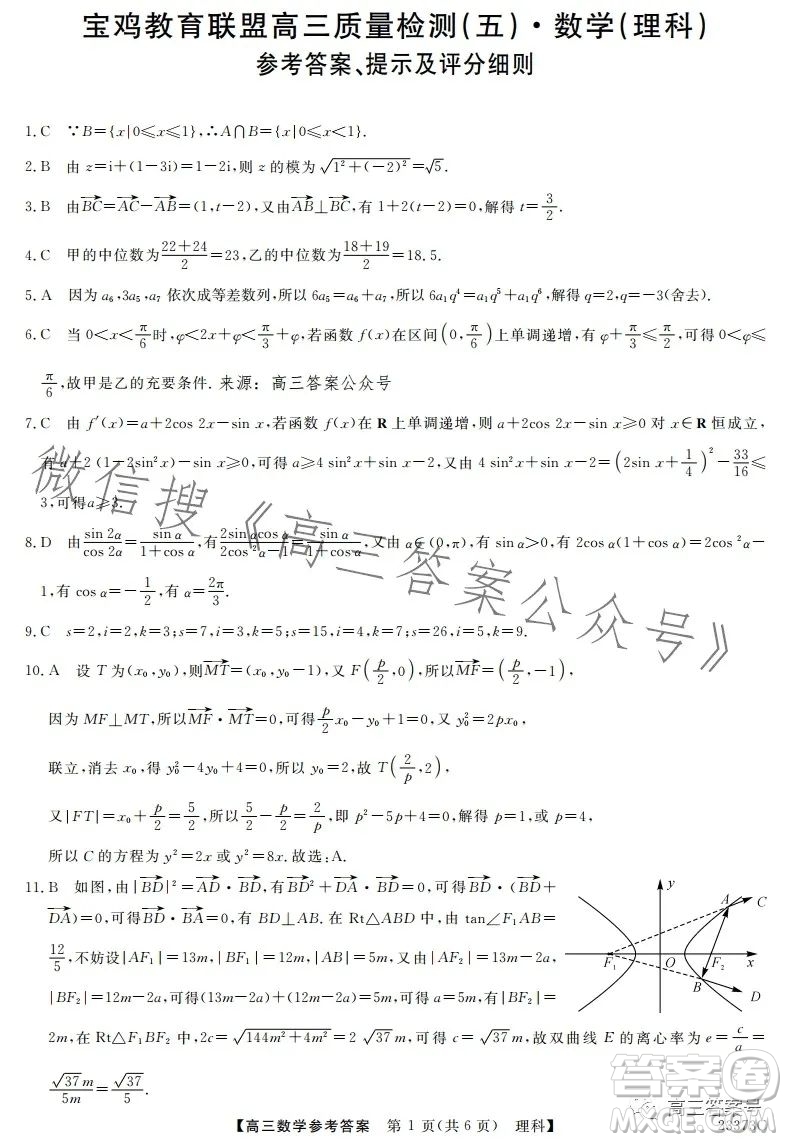 宝鸡教育联盟高三质量检测(五)·数学(理科)
参考答案、提示及评分细则
1.C ∵B={x|0≤x≤1},∴A∩B={x|0≤x≤1}.
2.B 由 z=i+(1−3i)=1−2i,则 z 的模为√(1²+(−2)²)=√5.
3.B 由BC=AC−AB=(1,t−2),又由AB⊥BC,有 1+2(t−2)=0,解得 t=3/2.
4.C 甲的中位数为(22+24)/2=23,乙的中位数为(18+19)/2=18.5.
5.A 因为 a₆,3a₅,a₇ 依次成等差数列,所以 6a₅=a₆+a₇,所以 6a₁q⁴=a₁q⁵+a₁q⁶,解得 q=2,q=−3(舍去).
6.C 当 0<x<π/6时,φ<2x+φ<π/3+φ,若函数 f(x)在区间(0,π/6)上单调递增,有 φ+π/3≤π/2,可得 0<φ≤
π/6,故甲是乙的充要条件. 来源:高三答案公众号
7.C 由 f′(x)=a+2cos 2x−sin x,若函数 f(x)在 R 上单调递增,则 a+2cos 2x−sin x≥0 对 x∈R 恒成立,
有 a+2(1−2sin²x)−sin x≥0,可得 a≥4sin²x+sin x−2,又由 4sin²x+sin x−2=(2sin x+1/4)²−33/16≤
3,可得a≥3.
8.D 由sin 2α/cos 2α=sin α/(1+cos α),有2sin αcos α/(2cos²α−1)=sin α/(1+cos α),又由 α∈(0,π),有 sin α>0,有 2cos α(1+cos α)=2cos²α−
1,有 cos α=−1/2,有 α=2π/3.
9.C s=2,i=2,k=3;s=7,i=3,k=5;s=15,i=4,k=7;s=26,i=5,k=9.
10.A 设 T 为(x₀,y₀),则MT=(x₀,y₀−1),又 F(p/2,0),所以MF=(p/2,−1),
因为 MF⊥MT,所以MF·MT=0,可得p/2x₀−y₀+1=0,又 y₀²=2px₀,
联立,消去 x₀,得 y₀²−4y₀+4=0,所以 y₀=2,故 T(2/p,2),
又|FT|=x₀+p/2=5/2,所以5/2−p/2=2/p,即 p²−5p+4=0,解得 p=1,或 p=4,
所以 C 的方程为 y²=2x 或 y²=8x.故选:A.
11.B 如图,由|BD|²=AD·BD,有BD²+DA·BD=0,可得BD·(BD+
DA)=0,可得BD·BA=0,有 BD⊥AB. 在 Rt△ABD 中,由 tan∠F₁AB=
12/5,不妨设|AF₁|=13m,|BF₁|=12m,|AB|=5m,又由|AF₂|=13m−2a,
|BF₂|=12m−2a,可得(13m−2a)+(12m−2a)=5m,可得 a=5m,有|BF₂|=
2m,在 Rt△F₁BF₂ 中,2c=√(144m²+4m²)=2√37m,可得 c=√37m,故双曲线 E 的离心率为 e=c/a=
√37m/5m=√37/5.
y
A
C
F₁
O
F₂
x
B
D
微信搜《高三答案公众号》
【高三数学参考答案 第 1 页(共 6 页) 理科】
高三答案号
233730
答案圈
MXQE.COM